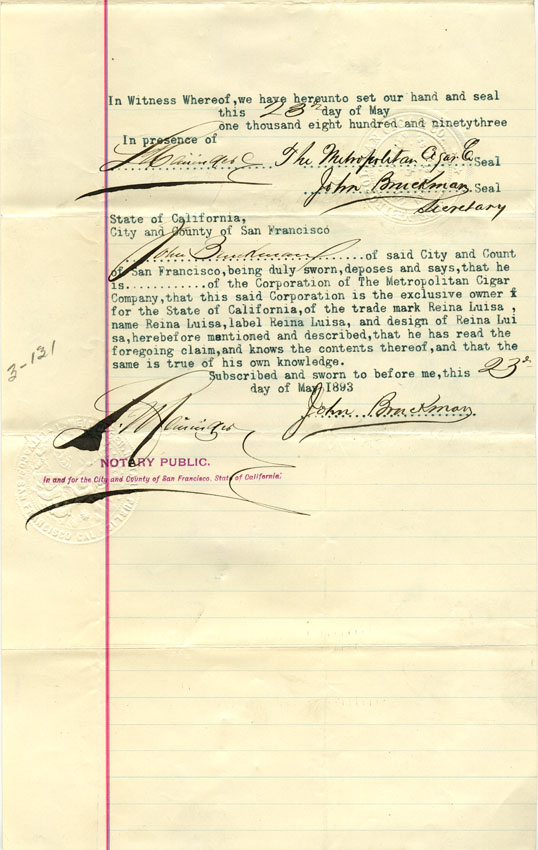 In Witness Whereof,we have hereunto set our hand and seal
this 23d day of May
one thousand eight hundred and ninetythree
In presence of
The Metropolitan Cigar Co Seal
John Bruckman. Seal
Secretary
State of California,
City and County of San Francisco
John Bruckman of said City and Count
of San Francisco,being duly sworn,deposes and says,that he
is..........of the Corporation of The Metropolitan Cigar
Company,that this said Corporation is the exclusive owner
for the State of California,of the trade mark Reina Luisa ,
name Reina Luisa,label Reina Luisa, and design of Reina Lui
sa,herebefore mentioned and described,that he has read the
foregoing claim,and knows the contents thereof,and that the
same is true of his own knowledge.
3-131
Subscribed and sworn to before me,this 23d
day of May 1893
John Bruckman.
NOTARY PUBLIC.
in and for the City and County of San Francisco, State of California.